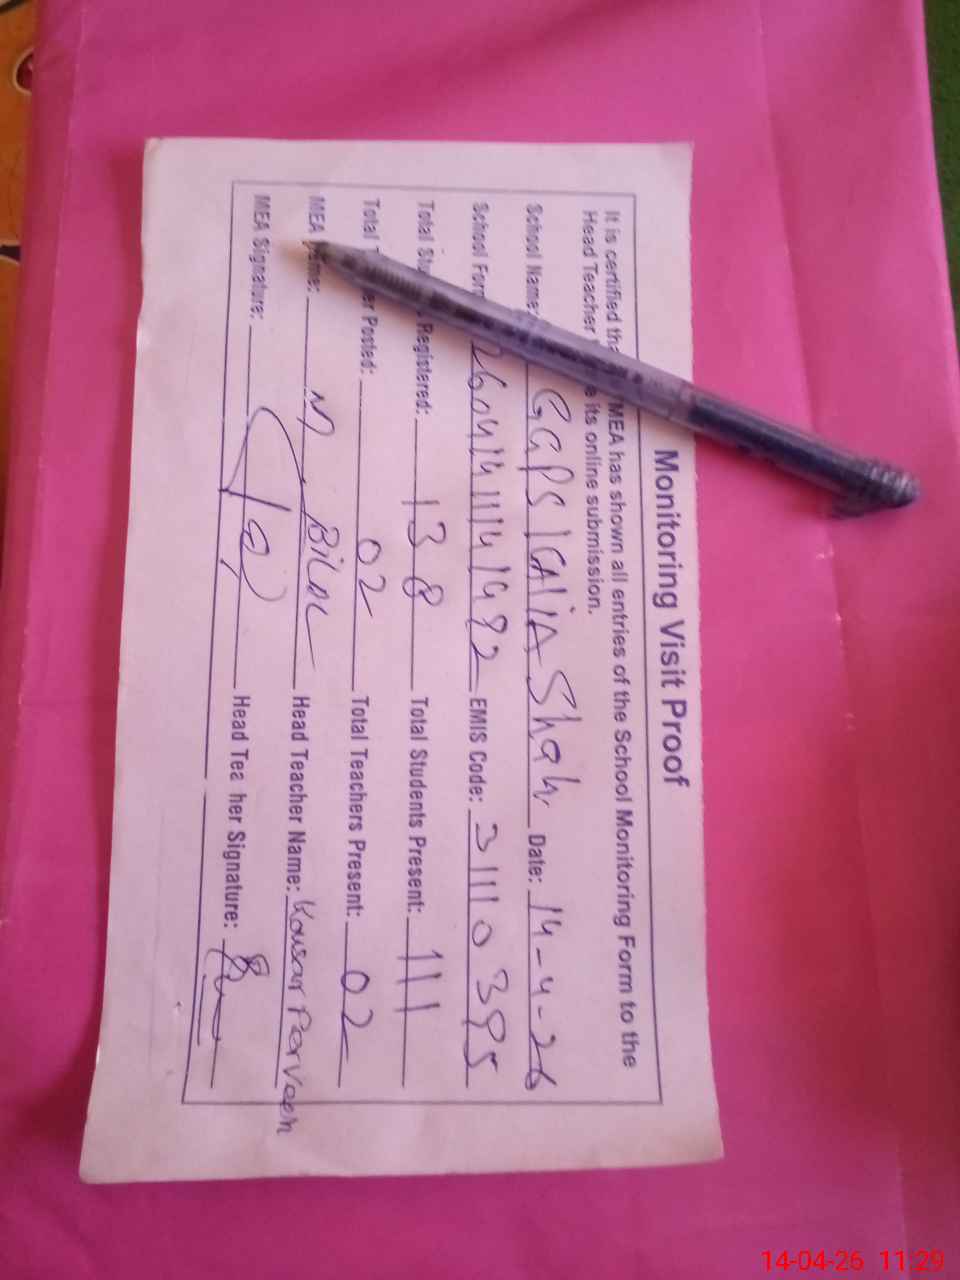 Monitoring Visit Proof
It is certified that MEA has shown all entries of the School Monitoring Form to the
Head Teacher its online submission.
School Name: GGPS Shah Date: 14-4-26
School Form 2604141114 EMIS Code: 31110395
Total Registered: 138 Total Students Present: 111
Total Posted: 02 Total Teachers Present: 02
MEA Name: M Bilal Head Teacher Name: Kousar Parveen
MEA Signature: Head Tea her Signature:
14-04-26 11:29